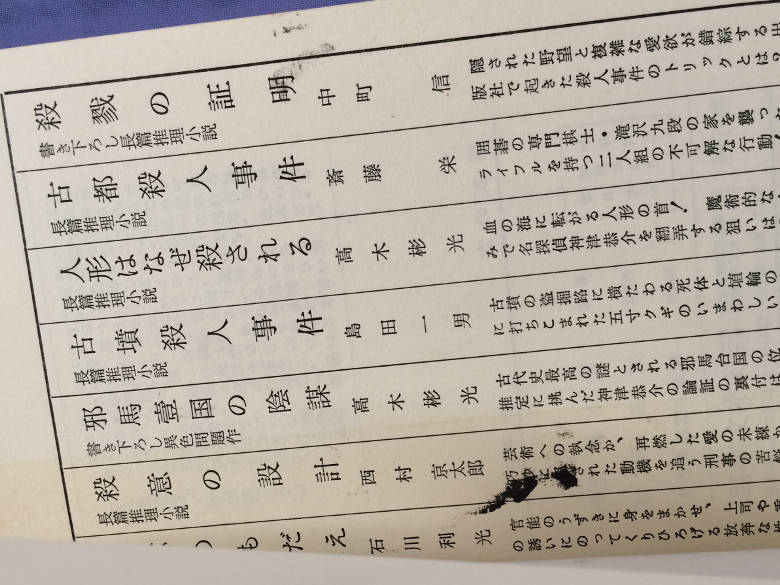 殺戮の証明 中町 信
書き下ろし長篇推理小説
隠された野望と複雑な愛欲が錯綜する出
版社で起きた殺人事件のトリックとは?
古都殺人事件 斎藤 栄
長篇推理小説
囲碁の専門棋士・滝沢九段の家を襲った
ライフルを持つ二人組の不可解な行動!
人形はなぜ殺される 高木彬光
長篇推理小説
血の海に転がる人形の首! 魔術的な
みで名探偵神津恭介を翻弄する狙いは
古墳殺人事件 島田一男
長篇推理小説
古墳の盗掘路に横たわる死体と埴輪の
に打ちこまれた五寸クギのいまわしい
邪馬壹国の陰謀 高木彬光
書き下ろし異色問題作
古代史最高の謎とされる邪馬台国の位
推定に挑んだ神津恭介の論証の裏付は
殺意の設計 西村京太郎
長篇推理小説
芸術への執念か、再燃した愛の未練か
された動機を追う刑事の苦
もだえ 石川利光
官能のうずきに身をまかせ、上司や
の誘いにのってくりひろげる放奔な